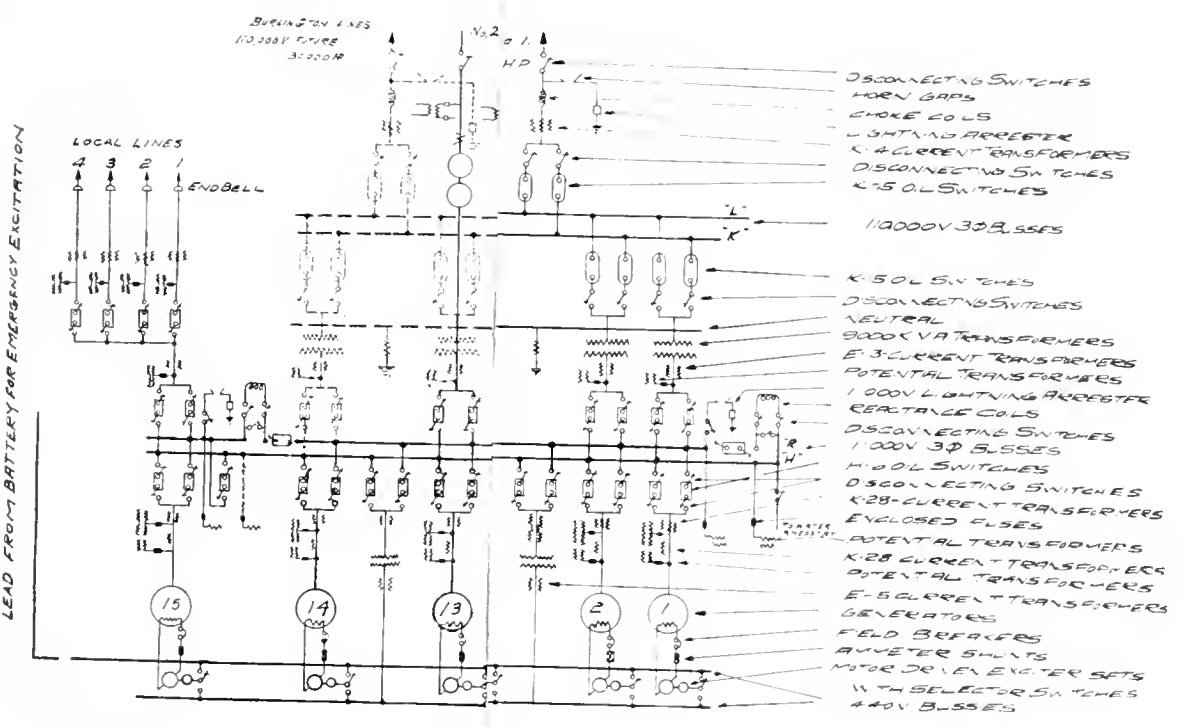 BURLINGTON LINES
110,000V FUTURE
30000
No.2
a 1.
HP
LOCAL LINES
4 3 2 1
END BELL
LEAD FROM BATTERY FOR EMERGENCY EXCITATION
DISCONNECTING SWITCHES
HORN GAPS
CHOKE COILS
LIGHTNING ARRESTER
K-4 CURRENT TRANSFORMERS
DISCONNECTING SWITCHES
K-5 OIL SWITCHES
"L"
"K"
110000V 3Ø BUSSES
K-5 OIL SWITCHES
DISCONNECTING SWITCHES
NEUTRAL
9000 KVA TRANSFORMERS
E-3-CURRENT TRANSFORMERS
POTENTIAL TRANSFORMERS
11000V LIGHTNING ARRESTER
REACTANCE COILS
DISCONNECTING SWITCHES
"R"
"H"
11000V 3Ø BUSSES
H-6 OIL SWITCHES
DISCONNECTING SWITCHES
K-28-CURRENT TRANSFORMERS
ENCLOSED FUSES
TO WATER RHEOSTAT
POTENTIAL TRANSFORMERS
K-28 CURRENT TRANSFORMERS
POTENTIAL TRANSFORMERS
E-5 CURRENT TRANSFORMERS
GENERATORS
15 14 13 2 1
FIELD BREAKERS
AMMETER SHUNTS
MOTOR DRIVEN EXCITER SETS
WITH SELECTOR SWITCHES
440V BUSSES